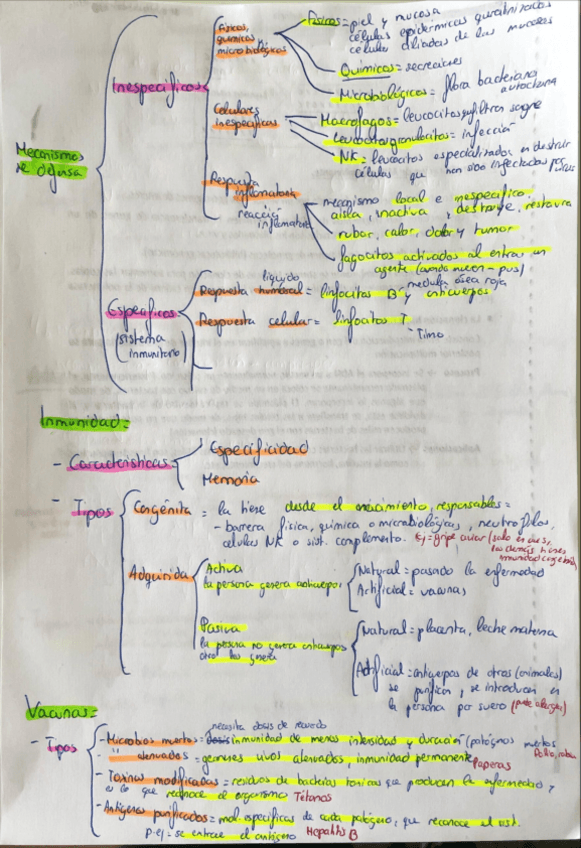 Físicos = piel y mucosa
células epidérmicas queratinizadas
células ciliadas de las mucosas
Físicos,
químicos y
microbiológicos
Químicos = secreciones
Microbiológicos = flora bacteriana
autóctona
Inespecíficos
Celulares
inespecíficos
Macrófagos = leucocitos q filtran sangre
Leucocitos granulocitos = infección
NK = leucocitos especializados en destruir
células que han sido infectadas por virus
Mecanismos
de defensa
Respuesta
inflamatoria
reacción
inflamatoria
mecanismo local e inespecífico,
aisla, inactiva, destruye, restaura
rubor, calor, dolor y tumor
fagocitos activados al entrar un
agente (cuando mueren - pus)
líquido
Respuesta humoral = linfocitos B y anticuerpos
médula ósea roja
Específicos
(sistema
inmunitario)
Respuesta celular = linfocitos T
Timo
Inmunidad =
- Características
Especificidad
Memoria
- Tipos
Congénita = la tiene desde el nacimiento, responsables =
- barrera física, química o microbiológicas, neutrófilos,
células NK o sist. complemento. Ej = gripe aviar (solo en aves,
inmunidad congénita)
Adquirida
Activa
la persona genera anticuerpos
Natural = pasado la enfermedad
Artificial = vacunas
Pasiva
la persona no genera anticuerpos
otro los genera
Natural = placenta, leche materna
Artificial = anticuerpos de otros (animales)
se purifican, se introducen en
la persona por suero (puede alergias)
Vacunas =
- Tipos
necesita dosis de recuerdo
- Microbios muertos = dosis inmunidad de menos intensidad y duración (patógenos muertos
Polio, rabia
" atenuados = gérmenes vivos atenuados, inmunidad permanente Paperas
- Toxinas modificadas = residuos de bacterias tóxicas que producen la enfermedad y
es lo que reconoce el organismo Tétanos
- Antígenos purificados = mol. específicas de cada patógeno, que reconoce el sist.
p.ej = se extrae el antígeno Hepatitis B